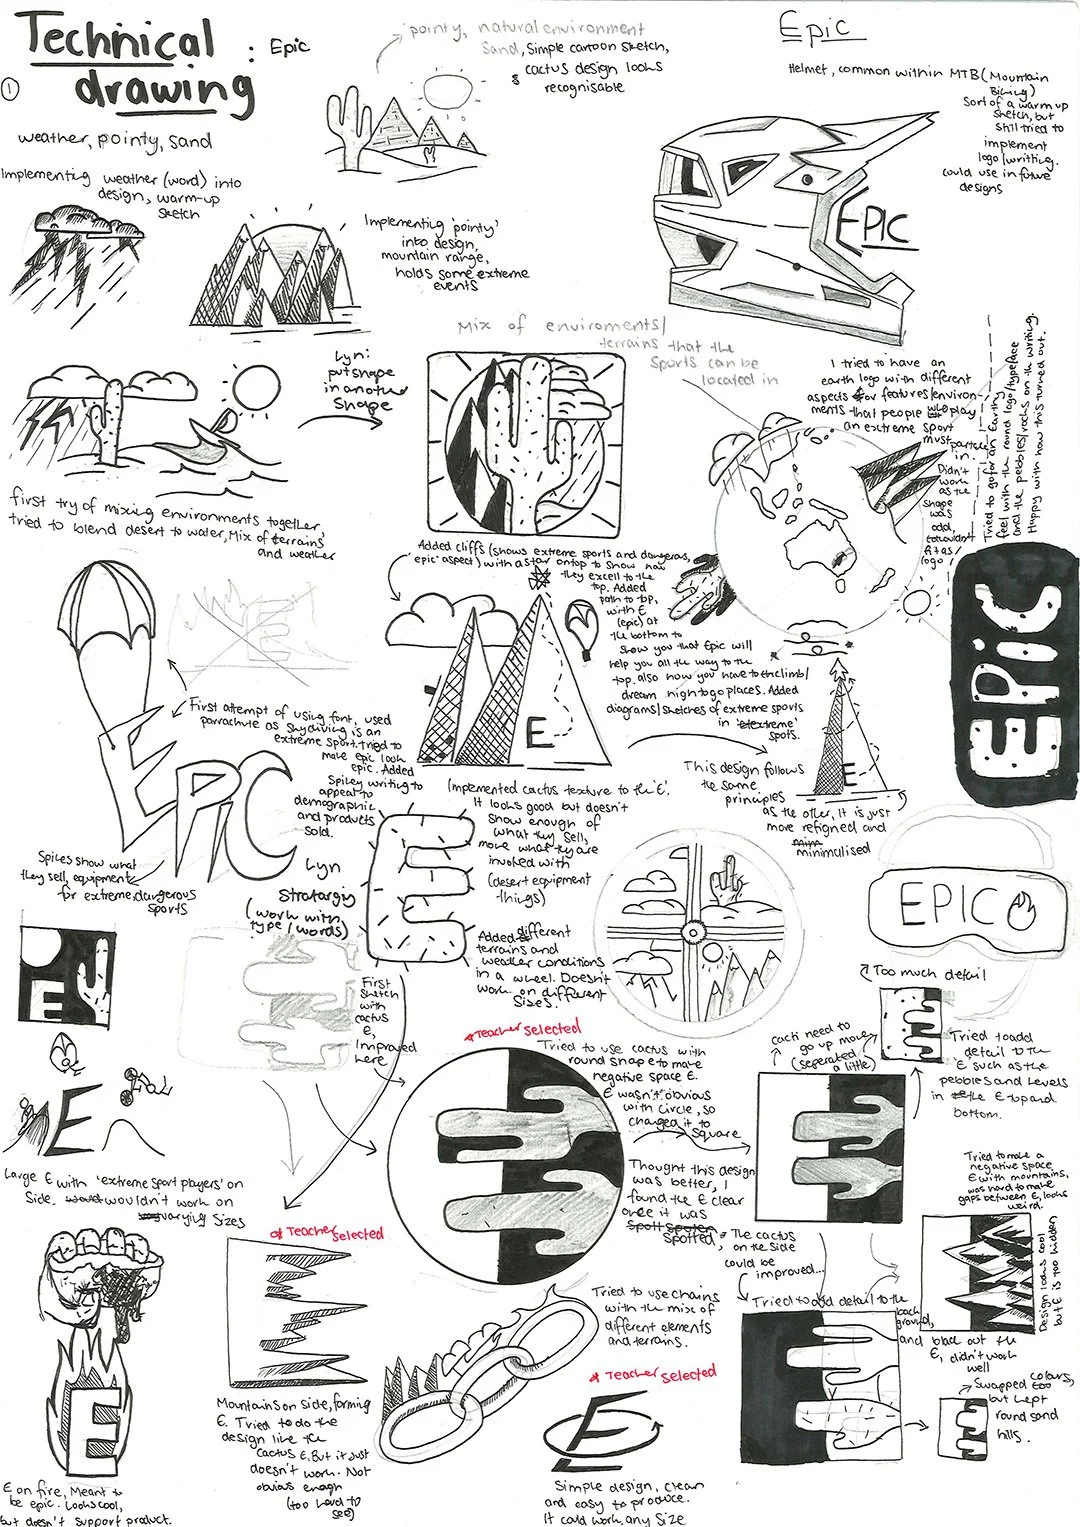 Technical
drawing
: Epic
1
weather, pointy, sand
Implementing weather (word) into
design, warm-up
sketch
pointy, natural environment
Sand, Simple cartoon sketch,
& cactus design looks
recognisable
Epic
Helmet, common within MTB (Mountain
Biking)
Sort of a warm up
sketch, but
still tried to
implement
logo/writing.
could use in future
designs
EPIC
Implementing 'pointy'
into design,
mountain range,
holds some extreme
events
Mix of enviroments/
terrains that the
Sports can be
located in
Lyn:
put shape
in another
Shape
first try of mixing environments together,
tried to blend desert to water, Mix of terrains
and weather
I tried to have an
earth logo with different
aspects for features/environ-
ments that people who play
an extreme sport
must particle
in.
Didn't
work
as the
shape
was
odd,
Tried to go for an Earthy
feel with the round logo/typeface
and the pebbles/rocks on the writing.
Happy with how this turned out.
EPiC
Added cliffs (shows extreme sports and dangerous,
'epic' aspect) with a star on top to show how
they excell to the
top. Added
path to top,
with E
(epic) at
the bottom to
show you that Epic will
help you all the way to the
top. also how you have to climb/
dream high to go places. Added
diagrams/sketches of extreme sports
in 'extreme'
spots.
E
This design follows
the same
principles
as the other, It is just
more refigned and
minimalised
E
First attempt of using font, used
parachute as skydiving is an
extreme sport. tried to
make epic look
epic. Added
Spikey writing to
appeal to
demographic
and products
sold.
EPiC
Spikes show what
they sell, equipment
for extreme, dangerous
sports
Lyn
Stratargiy
(work with
type/words)
Implemented cactus texture to the 'E',
It looks good but doesn't
show enough of
what they sell,
more what they are
involved with
(desert equipment
things)
E
Added different
terrains and
weather conditions
in a wheel. Doesn't
work on different
sizes.
EPIC
First
sketch
with
cactus
E,
Improved
here
E
Too much detail
Tried to add
detail to the
E such as the
pebbles and levels
in the E top and
bottom.
cacti need to
go up more
(seperated
a little)
* Teacher Selected
Tried to use cactus with
round shape to make
negative space E.
E wasn't obvious
with circle, so
changed it to
Square
Thought this design
was better, I
found the E clear
once it was
Spotted
* The cactus
on the side
could be
improved...
E
Large E with 'extreme sport players' on
Side. wouldn't work on
varying sizes
Tried to make a
negative space
E with mountains,
was hard to make
gaps between E, looks
weird.
Design looks cool
but E is too hidden
* Teacher Selected
Tried to use chains
with the mix of
different elements
and terrains.
Tried to add detail to the
back
ground,
and black out the
E, didn't work
well
Swapped colours,
but kept
round sand
hills.
* Teacher Selected
E
Mountains on side, forming
E. Tried to do the
design like the
cactus E. But it just
doesn't work. Not
obvious enough
(too hard to
see)
E
Simple design, clean
and easy to produce.
It could work any size
E
E on fire, Meant to
be epic. Looks cool,
but doesn't support product.